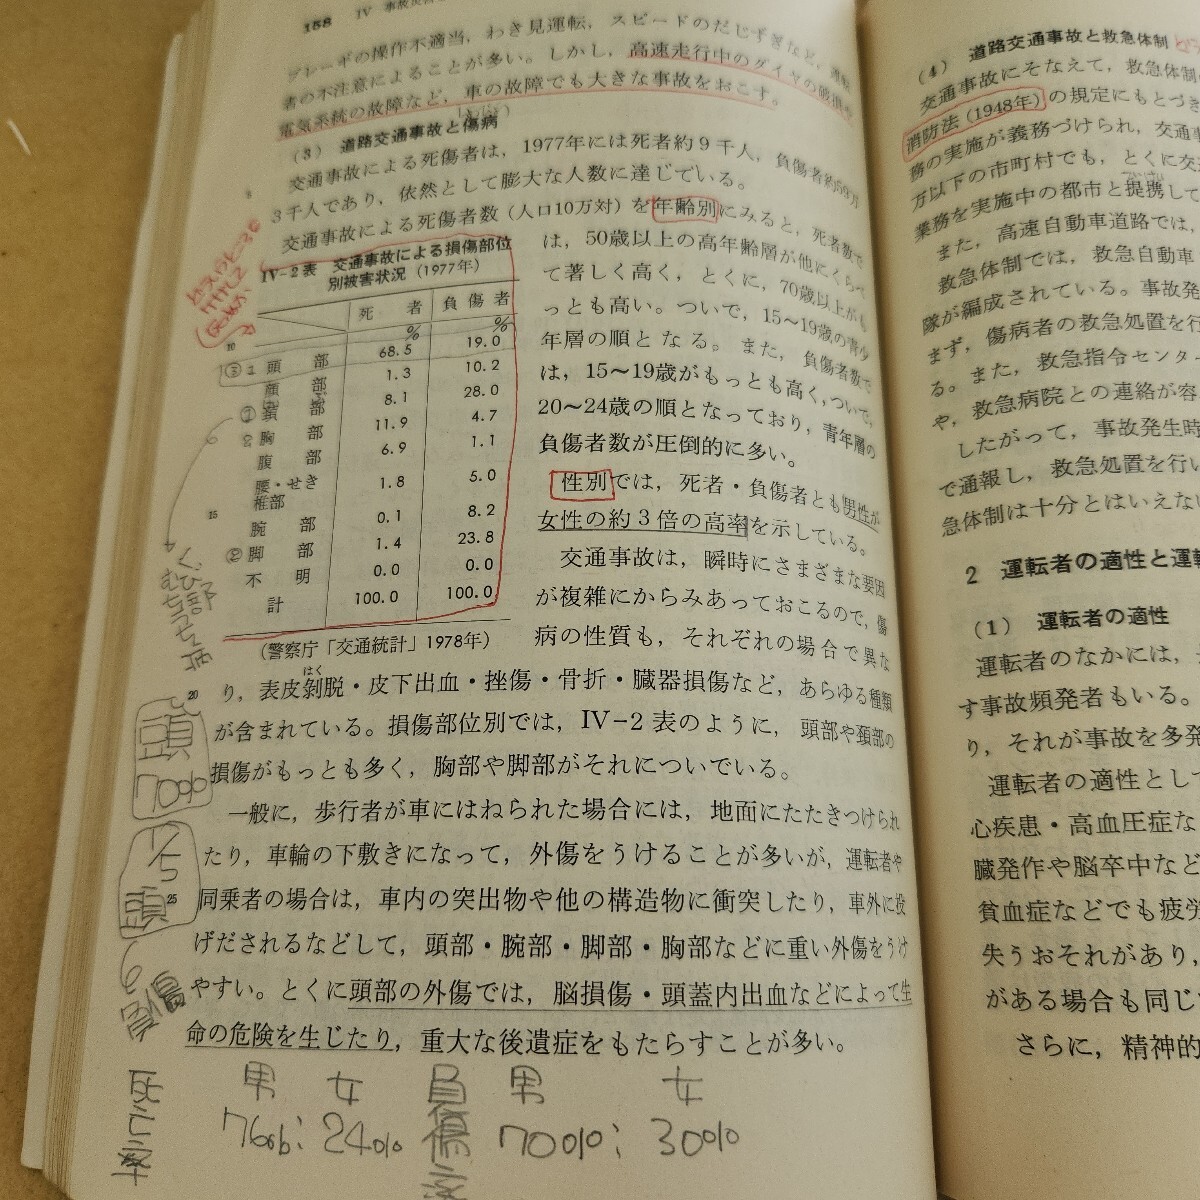 158 IV 事故災害
ブレーキの操作不適当，わき見運転，スピードのだしすぎなど，運転
者の不注意によることが多い。しかし，高速走行中のタイヤの破損や
電気系統の故障など，車の故障でも大きな事故をおこす。
(3) 道路交通事故と傷病
交通事故による死傷者は，1977年には死者約9千人，負傷者約59万
3千人であり，依然として膨大な人数に達している。
交通事故による死傷者数（人口10万対）を年齢別にみると，死者数で
は，50歳以上の高年齢層が他にくらべ
て著しく高く，とくに，70歳以上がも
っとも高い。ついで，15〜19歳の青少
年層の順となる。また，負傷者数で
は，15〜19歳がもっとも高く，ついで，
20〜24歳の順となっており，青年層の
負傷者数が圧倒的に多い。
性別では，死者・負傷者とも男性が
女性の約3倍の高率を示している。
交通事故は，瞬時にさまざまな要因
が複雑にからみあっておこるので，傷
病の性質も，それぞれの場合で異な
IV-2表 交通事故による損傷部位
別被害状況（1977年）
死者 負傷者
% %
頭部 68.5 19.0
顔部 1.3 10.2
頚部 8.1 28.0
胸部 11.9 4.7
腹部 6.9 1.1
腰・せき
椎部 1.8 5.0
腕部 0.1 8.2
脚部 1.4 23.8
不明 0.0 0.0
計 100.0 100.0
（警察庁「交通統計」1978年）
5
10
15
20
25
くび部
むちうち症
り，表皮剝脱・皮下出血・挫傷・骨折・臓器損傷など，あらゆる種類
はく
が含まれている。損傷部位別では，IV-2表のように，頭部や頚部の
損傷がもっとも多く，胸部や脚部がそれについでいる。
一般に，歩行者が車にはねられた場合には，地面にたたきつけられ
たり，車輪の下敷きになって，外傷をうけることが多いが，運転者や
同乗者の場合は，車内の突出物や他の構造物に衝突したり，車外に投
げだされるなどして，頭部・腕部・脚部・胸部などに重い外傷をうけ
やすい。とくに頭部の外傷では，脳損傷・頭蓋内出血などによって生
命の危険を生じたり，重大な後遺症をもたらすことが多い。
頭
70%
1/5
頭
負傷
死亡率 男 女 負傷率 男 女
76%: 24% 70%: 30%
(4) 道路交通事故と救急体制
交通事故にそなえて，救急体制
消防法（1948年）の規定にもとづき
務の実施が義務づけられ，交通事
万以下の市町村でも，とくに交
業務を実施中の都市と提携して
また，高速自動車道路では，
救急体制では，救急自動車
隊が編成されている。事故発
まず，傷病者の救急処置を行
る。また，救急指令センター
や，救急病院との連絡が容
したがって，事故発生時
で通報し，救急処置を行い
急体制は十分とはいえない
2 運転者の適性と運転
(1) 運転者の適性
運転者のなかには，
す事故頻発者もいる。
り，それが事故を多発
運転者の適性として
心疾患・高血圧症な
臓発作や脳卒中など
貧血症などでも疲労
失うおそれがあり，
がある場合も同じ
さらに，精神的